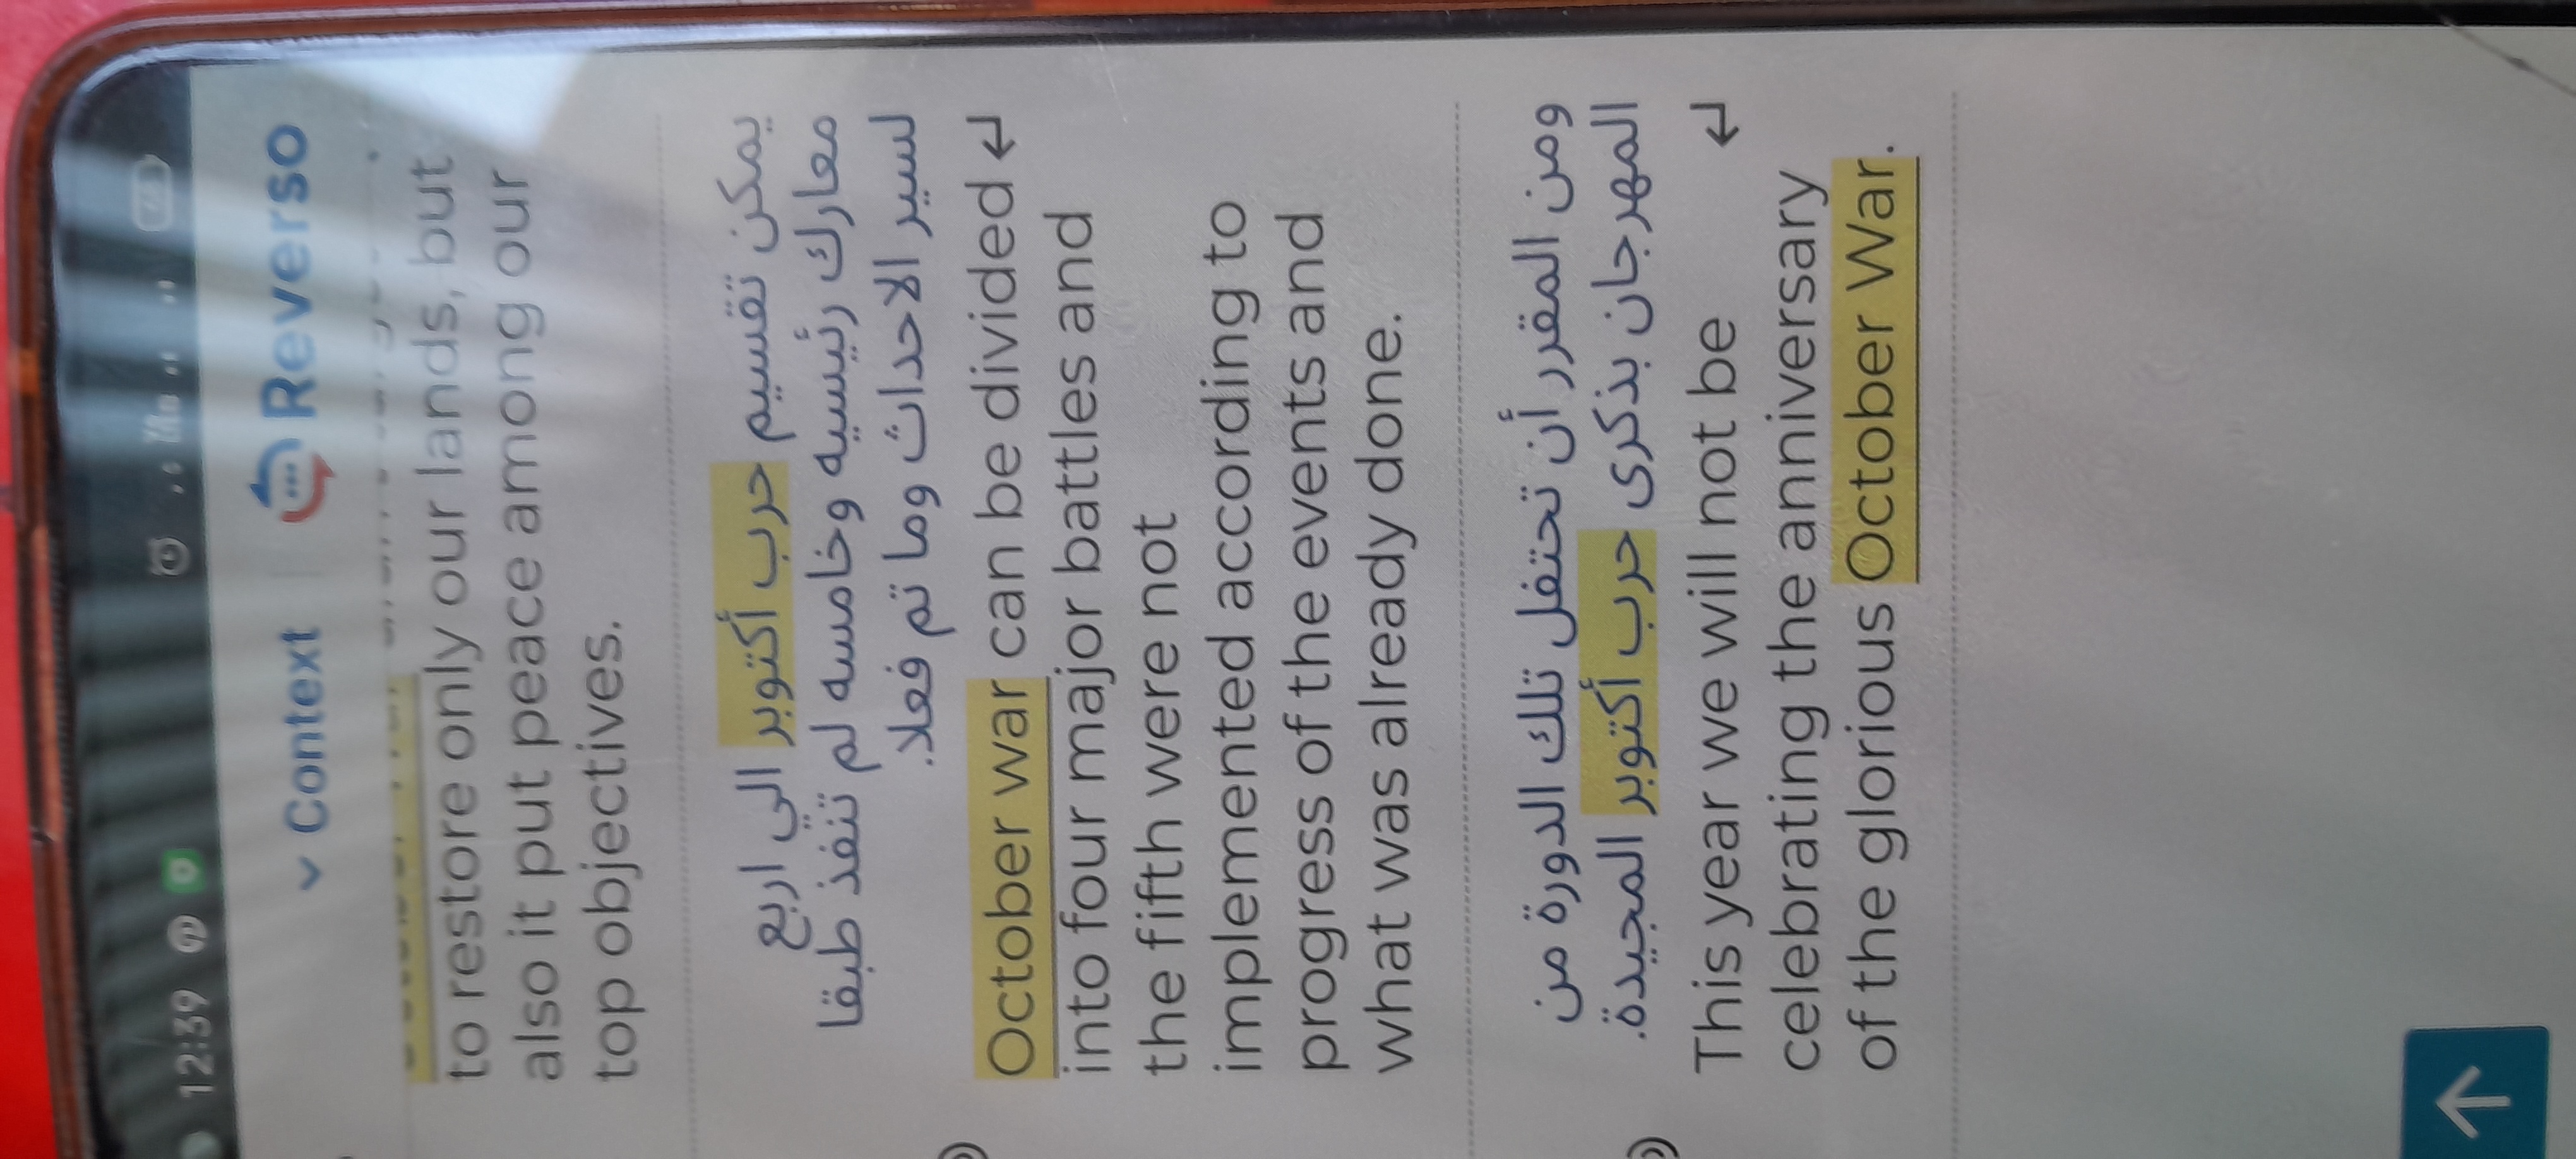 12:39
Context
Reverso
to restore only our lands, but
also it put peace among our
top objectives.
يمكن تقسيم حرب أكتوبر الي اربع
معارك رئيسيه وخامسه لم تنفذ طبقا
لسير الاحداث وما تم فعلا.
October war can be divided
into four major battles and
the fifth were not
implemented according to
progress of the events and
what was already done.
ومن المقرر أن تحتفل تلك الدورة من
المهرجان بذكرى حرب أكتوبر المجيدة.
This year we will not be
celebrating the anniversary
of the glorious October War.